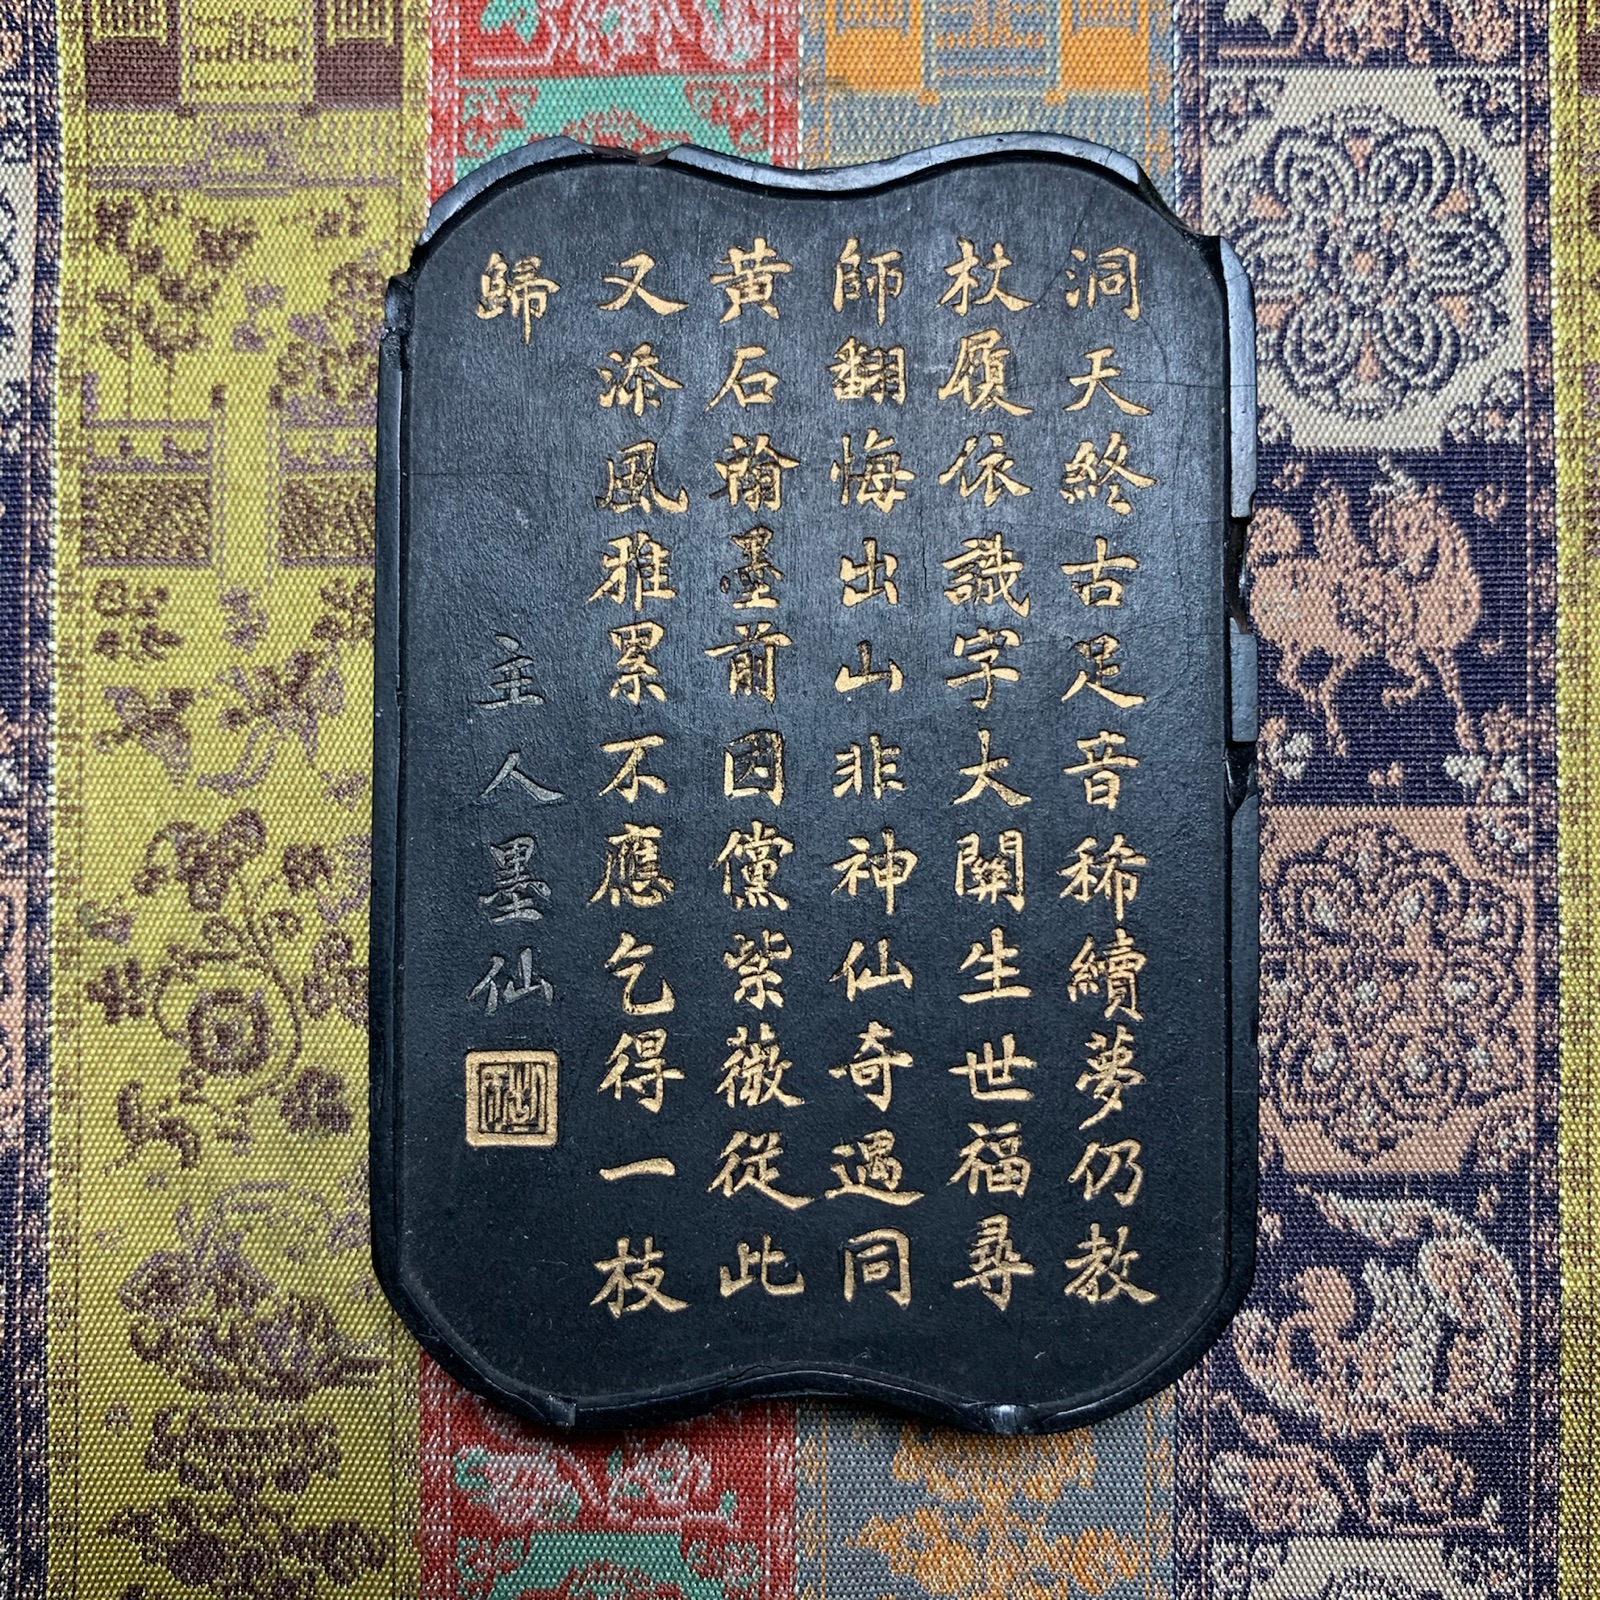 洞天終古足音稀續夢仍教
杖屨依識字大關生世福尋
師翻悔出山非神仙奇遇同
黃石翰墨前因儻紫薇從此
又添風雅累不應乞得一枝
歸
主人墨仙